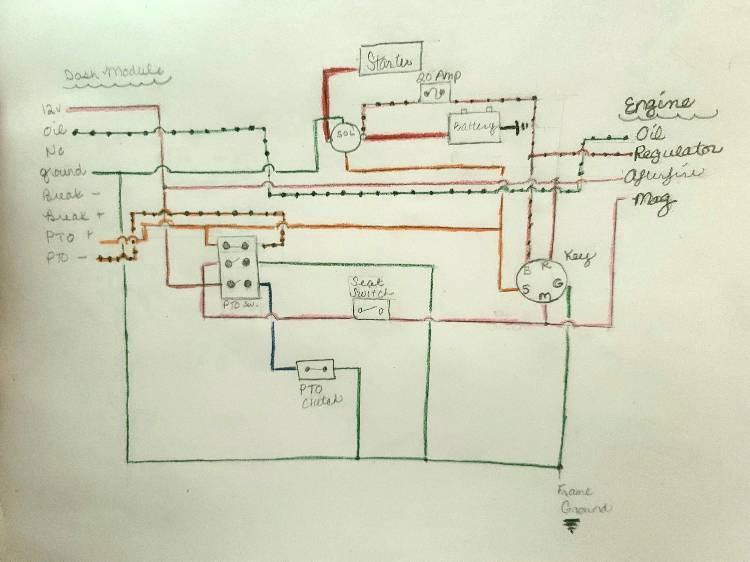 Dash Module
12v
Oil
No
ground
Break -
Break +
PTO +
PTO -
Starter
20 Amp
SOL
Battery
Engine
Oil
Regulator
Afterfire
Mag
Key
B R
S G
M
PTO Sw.
Seat
Switch
PTO
Clutch
Frame
Ground